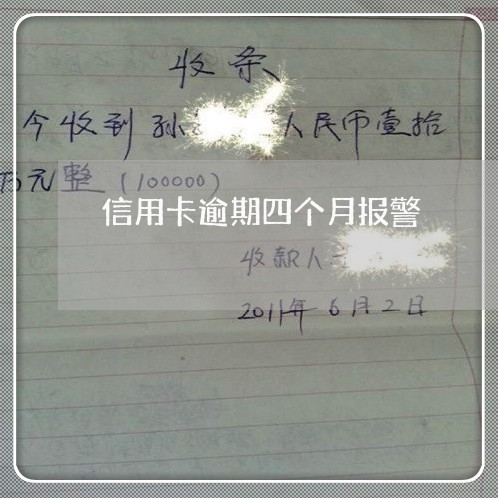 收条
今收到孙 人民币壹拾
万元整(100000)
信用卡逾期四个月报警
收款人
2011年6月2日